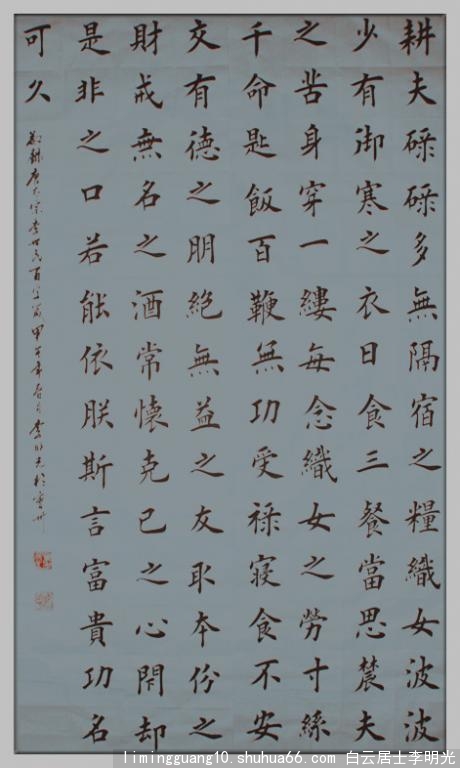 耕夫碌碌多無隔宿之糧織女波波
少有御寒之衣日食三餐當思農夫
之苦身穿一縷每念織女之勞寸絲
千命匙飯百鞭無功受祿寢食不安
交有德之朋絕無益之友取本份之
財戒無名之酒常懷克己之心閇却
是非之口若能依朕斯言富貴功名
可久
敬錄唐太宗李世民百字箴甲午年春月李明光於雷州
limingguang10.shuhua66.com 白云居士李明光